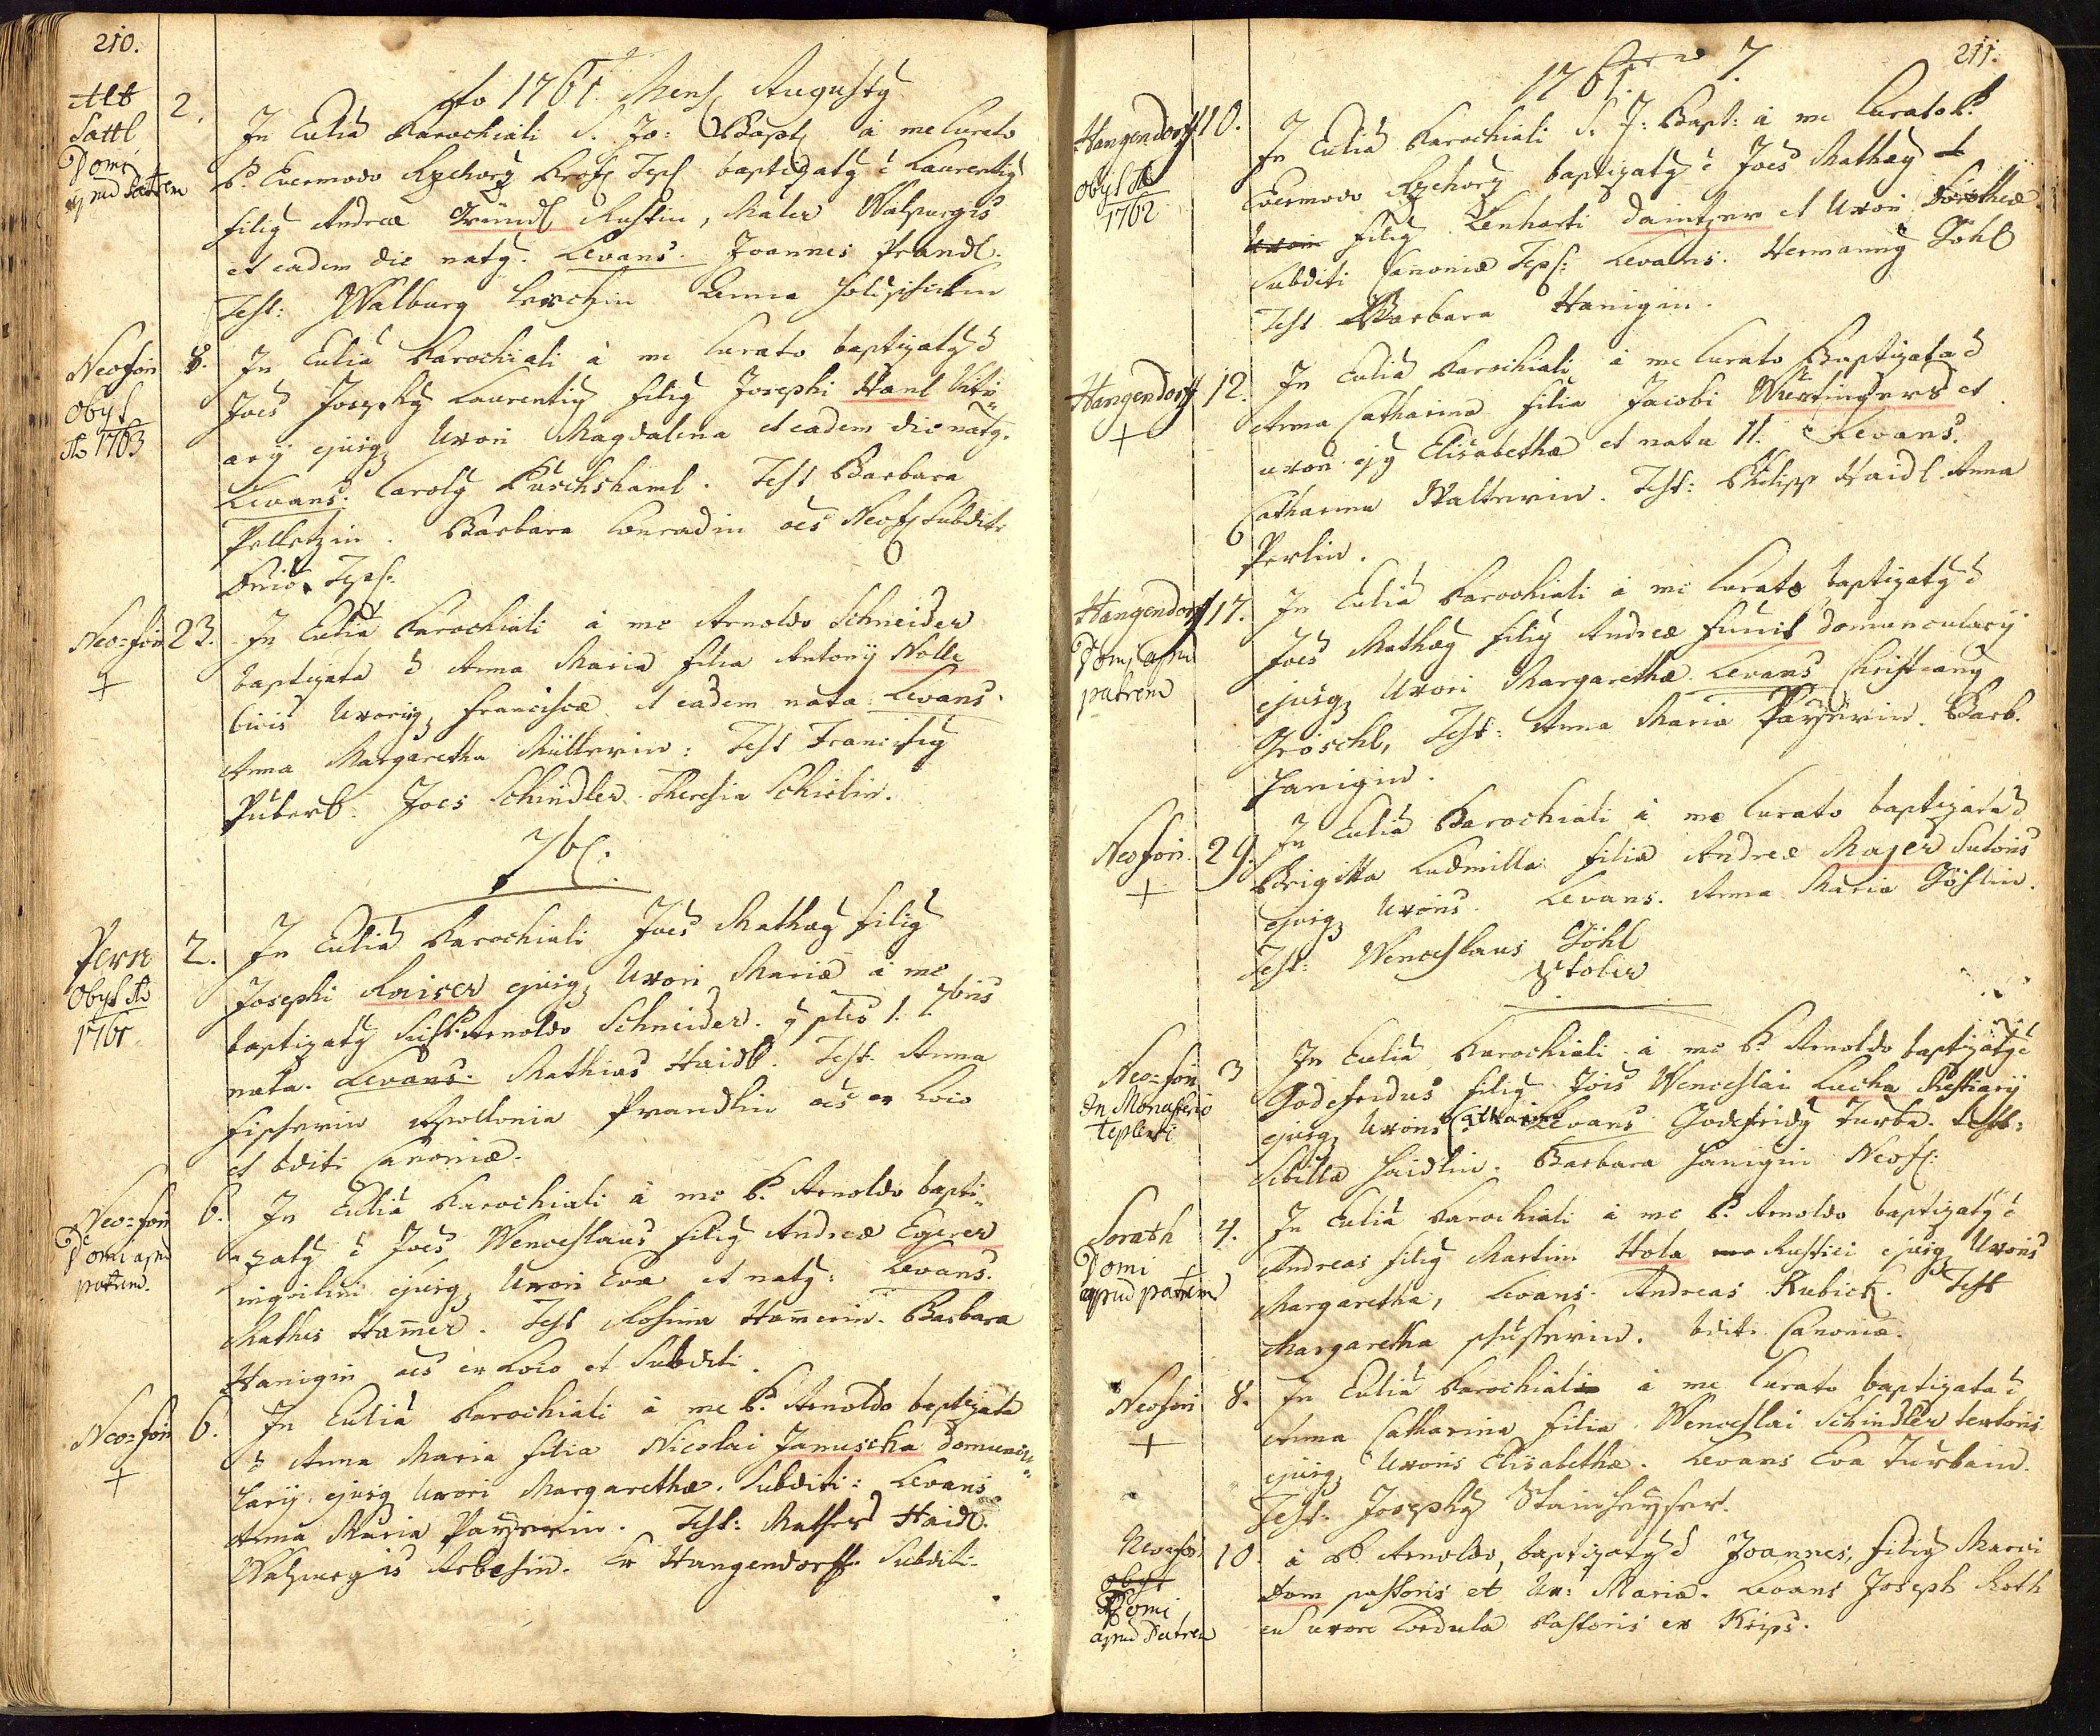 210.
Ao 1761. Mens Augusty
Alt
Sattl
Domi
apud Patrem
2.
In Eccliâ Parochiali S. Jo: Bapt à me Curato
P. Evermodo Rzehorz Prof Tepl baptizatg è Laurentig
filig Andreæ Gründl Rustin, Mater Walpurgis
et eadem die natg. Levans. Joannes Prandl.
Test: Walburg Lerchin Anna
Neofon
Obyt
Ao 1763
8.
In Eccliâ Parochiali à me Curato baptizatg è
Joes Josephg Laurentig filig Josephi Hanl
arij ejusqz Uxori Magdalena et eadem die natg.
Levans. Carolg Kürchshaml. Test Barbara
Pelletzin. Barbara Conradin oes Neof Subditi
Tepl:
Neo=fon
+
23.
In Eccliâ Parochiali à me Arnoldo Schneider
baptizata è Anna Maria filia Antonÿ Nolle
Uxorisqz Franciscæ et eadem nata Levans.
Anna Margaretha Müllerin: Test Francisg
Püberl. Joes Schindler. Theresia Schielin.
7br.
Pern
Obyt Ao
1761
2.
In Eccliâ Parochiali Joes Mathæg filig
Josephi Kaiser ejusqz Uxori Mariæ à me
baptizatg Arnoldo Schneider. 1. 7bris
nata. Levans. Mathias Haidl. Test. Anna
Fischerin Apollonia Prandlin oes ex Loco
et bditi Canoniæ.
Neo=fon
Domi apud
patrem.
6.
In Eccliâ Parochiali à me P. Arnoldo bapti=
=zatg è Joes Wenceslaus filig Andreæ Egerer
inqvilini ejusqz Uxori Evæ et natg: Levans.
Mathes Ham̄er. Test Rosina Ham̄erin. Barbara
Hanigin oes ex Loco et Subditi.
Neo=fon
+
6.
In Eccliâ Parochiali à me P. Arnoldo baptizata
è Anna Maria filia Nicolai Januschka Domuncu=
larij ejusqz Uxori Margarethæ. Subditi: Levans
Anna Maria Payerin. Test: Mathes Haidl.
Walpurgis Arbesin. Ex Hangendorff Subditi.
211.
1761. 7
Hangendorff
Obyt Ao
1762
10.
In Eccliâ Parochiali S. J: Bapt: à me Curato P.
Evermodo Rzehorz baptizatg è Joes Mathæg et
Uxori filig Lenharti Daintzer et Uxori Dorotheæ
Subditi Canoniæ Tepl: Levans. Hermanng Göhl
Test Barbara Hanigin.
Hangendorff
+
12.
In Eccliâ Parochiali à me Curato Baptizata è
Anna Catharina filia Jacobi Würtingers et
uxori ejg Elisabethæ et nata 11. Levans.
Catharina Walterin. Test: Philipp Haidl. Anna
Perlin.
Hangendorff
Domi apud
patrem
17.
In Eccliâ Parochiali à me Curato baptizatg è
Joes Mathæg filig Andreæ Funit Domuncularij
ejusqz Uxori Margarethæ Levans Christiang
Gröschl, Test: Anna Maria Payerin. Barb.
Hanigin.
Neofon.
+
29.
In Eccliâ Parochiali à me Curato baptizata è
Brigitta Ludmilla filia Andreæ Majer Sutoris
ejusqz Uxoris. Levans. Anna Maria Göhlin.
Test: Wenceslaus Göhl
Stoler
Neo=fon
In Monasterio
Teplensi
3
In Eccliâ Parochiali à me P. Arnoldo baptizatg è
Godefridus filig Jois Wenceslai Lucka Vestiarij
ejusqz Uxoris Catharinæ Levans Godefridg Turba. Test:
Sibilla Haidlin. Barbara Hanigin Neof:
Sorath
Domi
apud patrem
4.
In Eccliâ Parochiali à me P. Arnoldo baptizatg è
Andreas filig Martini Hola Rustici ejusqz Uxoris
Margaretha, Levans. Andreas Kubick. Test
Margaretha Schusterin. bditi Canoniæ.
Neofon
+
8.
In Eccliâ Parochiali à me Curato baptizata è
Anna Catharina filia Wenceslai Schindler textoris
ejusqz Uxoris Elisabethæ. Levans Eva Turbain.
Test. Josephg Stainheyser.
Neo=fon
obyt
Domi
apud Patrem
10.
à P. Arnoldo, baptizatg è Joannes, filig Marci
Tom pastoris et Ux: Mariæ. Levans Joseph Roth
cu uxore Cordula Pastoris ex Krips.